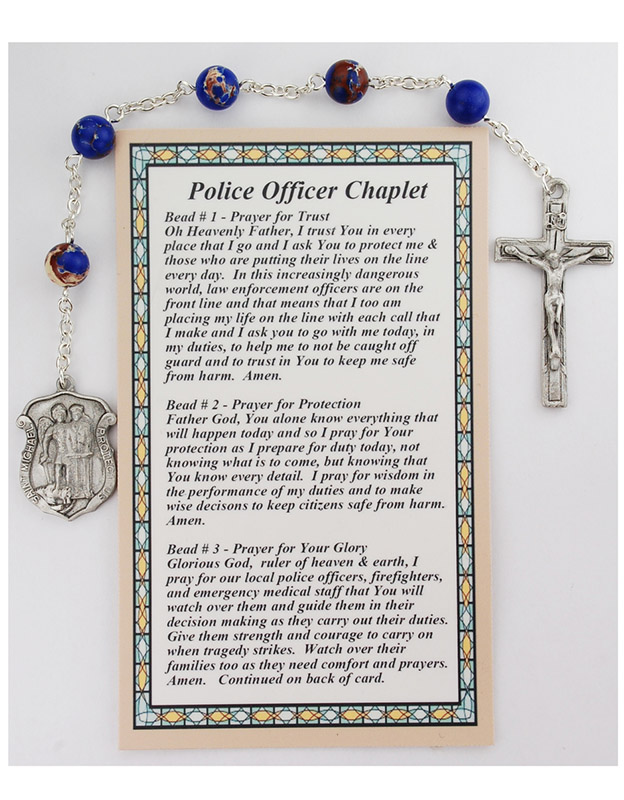 Police Officer Chaplet
Bead # 1 - Prayer for Trust
Oh Heavenly Father, I trust You in every
place that I go and I ask You to protect me &
those who are putting their lives on the line
every day. In this increasingly dangerous
world, law enforcement officers are on the
front line and that means that I too am
placing my life on the line with each call that
I make and I ask you to go with me today, in
my duties, to help me to not be caught off
guard and to trust in You to keep me safe
from harm. Amen.
Bead # 2 - Prayer for Protection
Father God, You alone know everything that
will happen today and so I pray for Your
protection as I prepare for duty today, not
knowing what is to come, but knowing that
You know every detail. I pray for wisdom in
the performance of my duties and to make
wise decisons to keep citizens safe from harm.
Amen.
Bead # 3 - Prayer for Your Glory
Glorious God, ruler of heaven & earth, I
pray for our local police officers, firefighters,
and emergency medical staff that You will
watch over them and guide them in their
decision making as they carry out their duties.
Give them strength and courage to carry on
when tragedy strikes. Watch over their
families too as they need comfort and prayers.
Amen. Continued on back of card.
SAINT MICHAEL